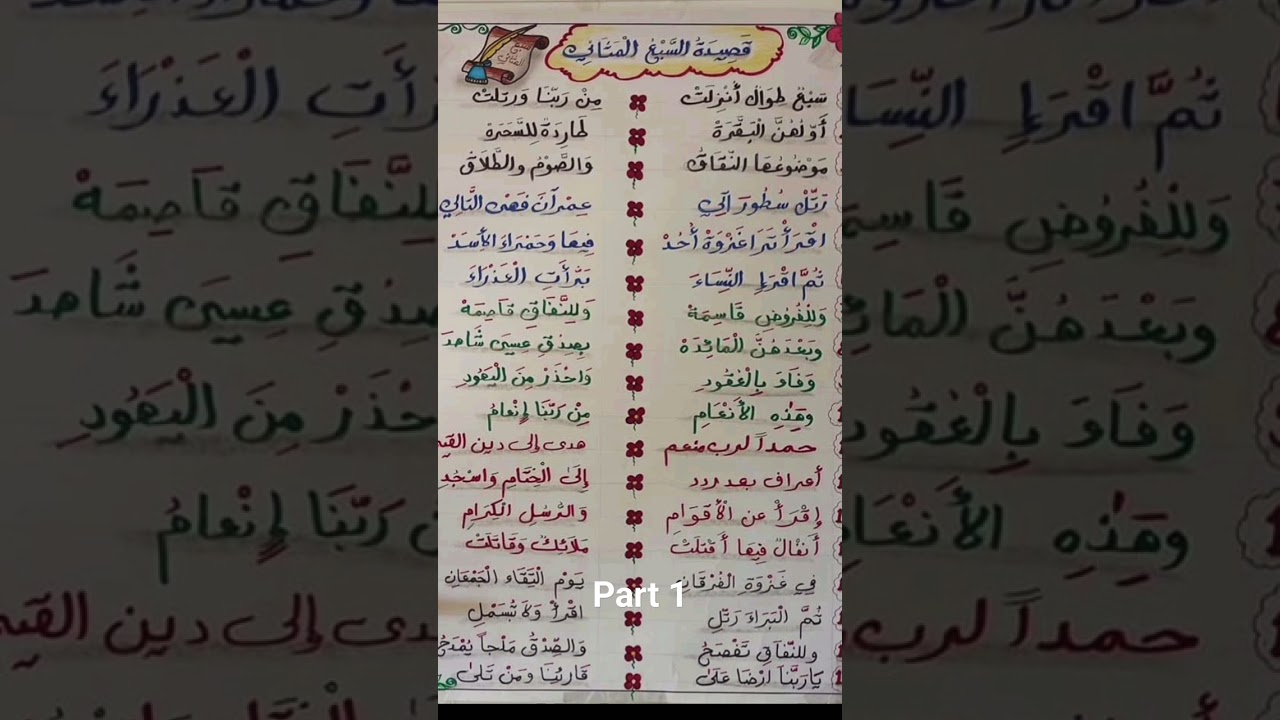 قَصِيدَةُ السَّبْعُ الْمَثَانِي
سَبْعٌ طِوَالٌ أُنْزِلَتْ مِنْ رَبِّنَا وَرُتِّلَتْ
أَوَّلُهُنَّ الْبَقَرَةْ طَارِدَةٌ لِلسَّحَرَةْ
مَوْضُوعُهَا النِّفَاقُ وَالصَّوْمُ والطَّلَاقُ
رَتِّلْ سُطُورَ آلِي عِمْرَانَ فَهْيَ التَّالِي
اقْرَأْ تَرَا غَزْوَةْ أُحُدْ فِيهَا وَحَمْرَاءَ الأَسَدْ
ثُمَّ اقْرَإِ النِّسَاءَ بَرَّأَتِ الْعَذْرَاءَ
وَلِلْفُرُوضِ قَاسِمَةْ وَلِلنِّفَاقِ قَاصِمَةْ
وَبَعْدَهُنَّ الْمَائِدَهْ بِصِدْقِ عِيسَى شَاهِدَ
وَفَاءَ بِالْعُقُودِ وَاحْذَرْ مِنَ الْيَهُودِ
وَهَذِهِ الأَنْعَامِ مِنْ رَبِّنَا إِنْعَامُ
حمداً لرب منعم هدى إلى دين القي
أعراف بعد ردد إِلَى الْخِتَامِ وَاسْجُدِ
إِقْرَأْ عن الْأَقْوَامِ وَالرُّسُلِ الْكِرَامِ
أَنْفَالُ فِيهَا أَقْبَلَتْ مَلَائِكٌ وَقَاتَلَتْ
فِي غَزْوَةِ الْفُرْقَانِ يَوْمِ الْتِقَاءِ الْجَمْعَانِ
ثُمَّ الْبَرَاءَ رَتِّلِ اقْرَأْ وَلَا تُبَسْمِلِ
وللنِّفَاقِ تَفْضَحُ وَالصِّدْقُ مَلْجأً
يَارَبَّنَا ارْضَا عَلَى قَارِئِنَا وَمَنْ تَلَى
Part 1